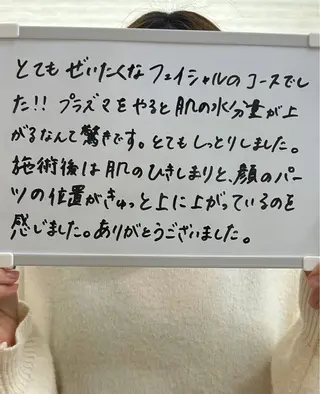 とても ぜいたくな フェイシャルの コースでし
た!! プラズマをやると肌の水分量が上
がるなんて驚きです。とてもしっとりしました。
施術後は肌のひきしまりと、顔のパー
ツの位置がきゅっと上に上がっているのを
感じました。ありがとうございました。